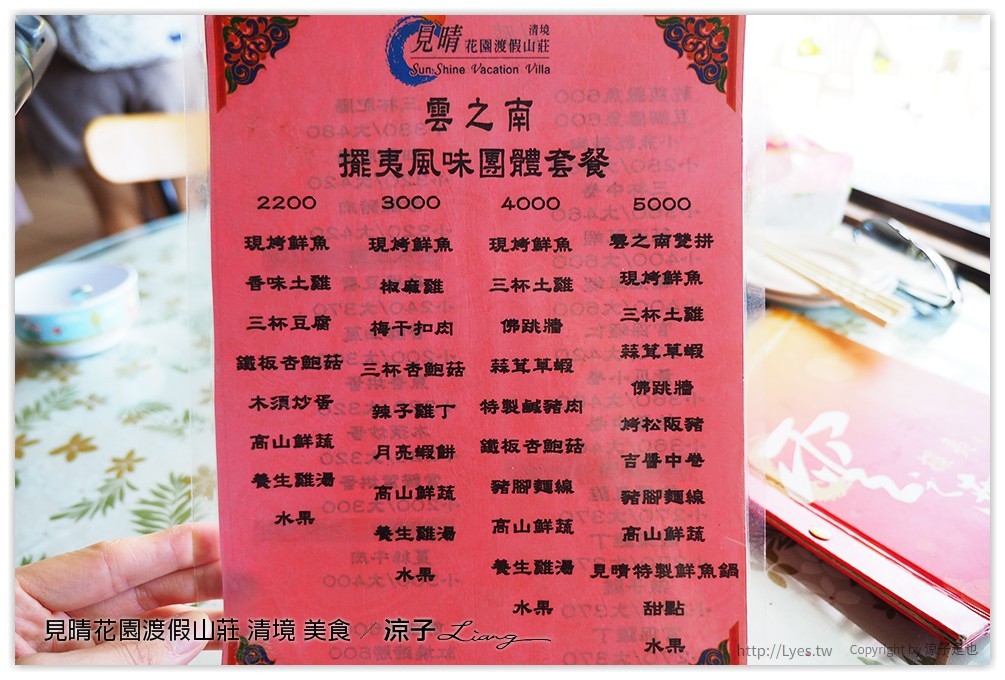 見晴 清境
花園渡假山莊
Sun Shine Vacation Villa
雲之南
擺夷風味團體套餐
2200
現烤鮮魚
香味土雞
三杯豆腐
鐵板杏鮑菇
木須炒蛋
高山鮮蔬
養生雞湯
水果
3000
現烤鮮魚
椒麻雞
梅干扣肉
三杯杏鮑菇
辣子雞丁
月亮蝦餅
高山鮮蔬
養生雞湯
水果
4000
現烤鮮魚
三杯土雞
佛跳牆
蒜茸草蝦
特製鹹豬肉
鐵板杏鮑菇
豬腳麵線
高山鮮蔬
養生雞湯
水果
5000
雲之南雙拼
現烤鮮魚
三杯土雞
蒜茸草蝦
佛跳牆
烤松阪豬
吉醬中卷
豬腳麵線
高山鮮蔬
見晴特製鮮魚鍋
甜點
水果
見晴花園渡假山莊 清境 美食 / 涼子 Liang
http://Lyes.tw Copyright by 涼子是也